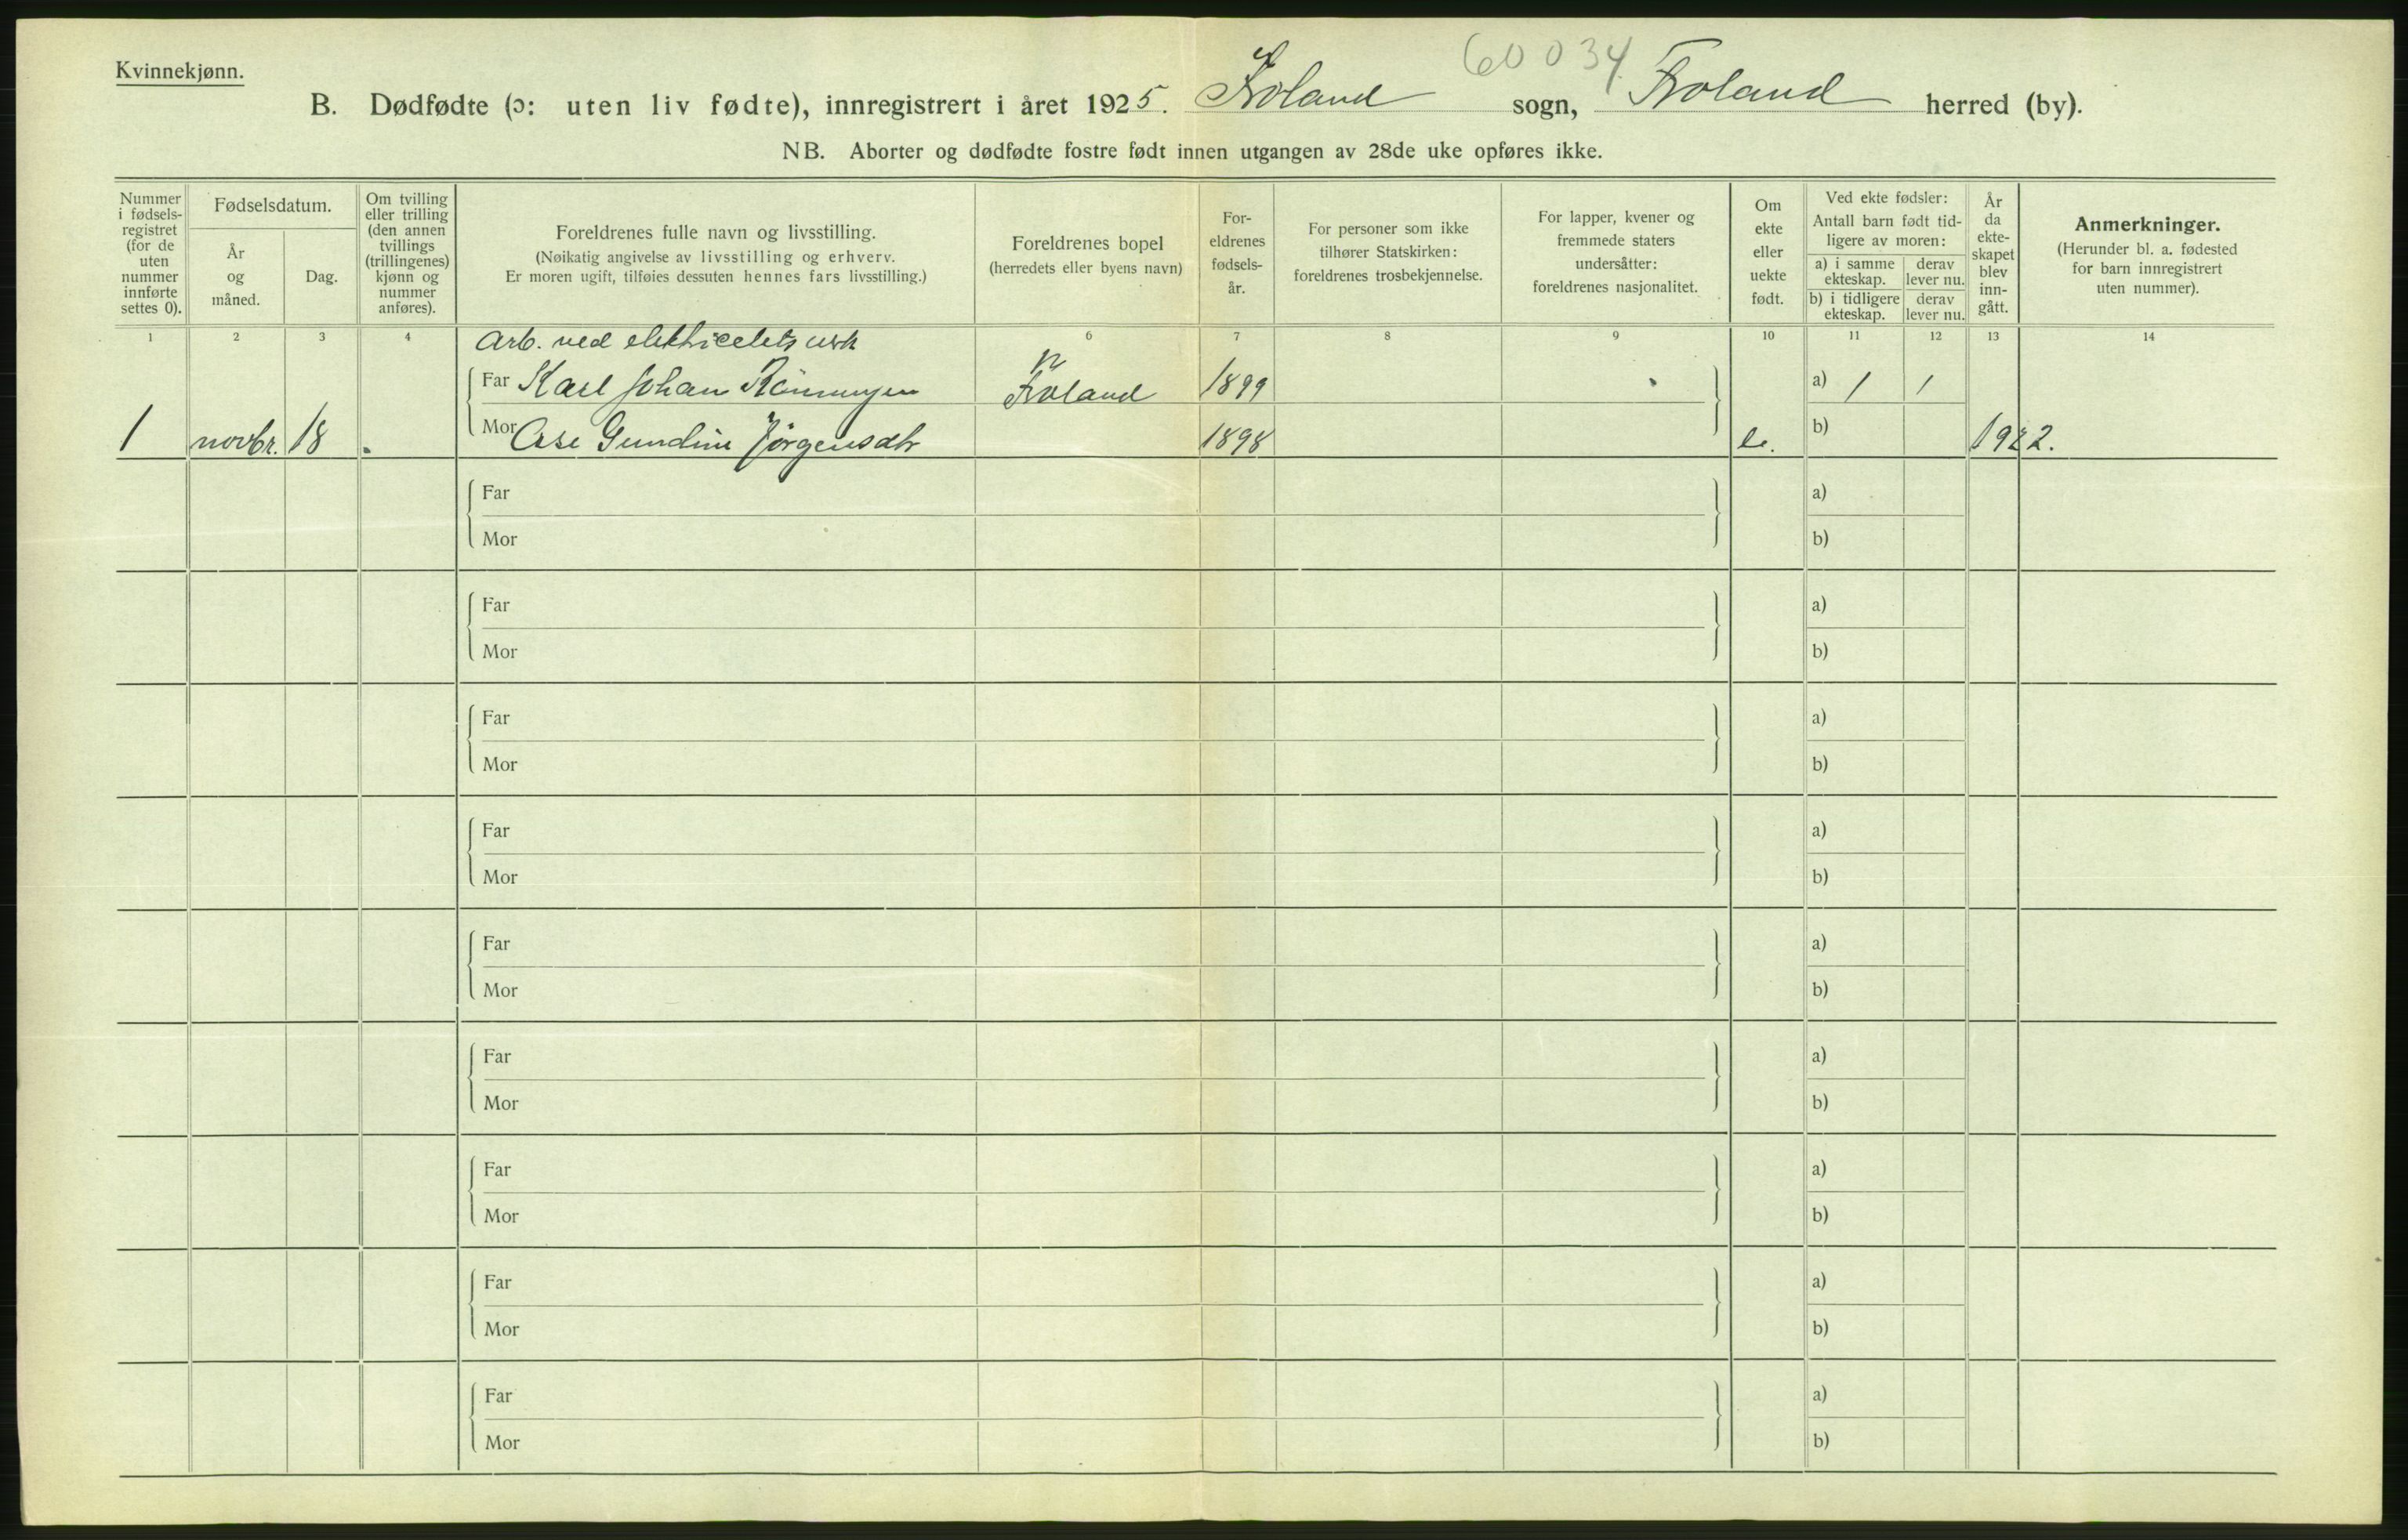 Kvinnekjønn.
60 034
B. Dødfødte (ɔ: uten liv fødte), innregistrert i året 1925. Froland sogn, Froland herred (by).
NB. Aborter og dødfødte fostre født innen utgangen av 28de uke opføres ikke.
Nummer i fødsels-registret (for de uten nummer innførte settes 0).
Fødselsdatum.
År og måned.
Dag.
Om tvilling eller trilling (den annen tvillings (trillingenes) kjønn og nummer anføres).
Foreldrenes fulle navn og livsstilling.
(Nøikatig angivelse av livsstilling og erhverv.
Er moren ugift, tilføies dessuten hennes fars livsstilling.)
Foreldrenes bopel
(herredets eller byens navn)
For-eldrenes fødsels-år.
For personer som ikke tilhører Statskirken: foreldrenes trosbekjennelse.
For lapper, kvener og fremmede staters undersåtter: foreldrenes nasjonalitet.
Om ekte eller uekte født.
Ved ekte fødsler:
Antall barn født tid-ligere av moren:
a) i samme ekteskap.
derav lever nu.
b) i tidligere ekteskap.
derav lever nu.
År da ekte-skapet blev inn-gått.
Anmerkninger.
(Herunder bl. a. fødested for barn innregistrert uten nummer).
1 2 3 4 6 7 8 9 10 11 12 13 14
Arb. ved elektricitets verk
Far Karl Johan Rönningen Froland 1899 a) 1 1
1 novbr. 18 Mor Åse Gundine Jörgensdtr 1898 e. b) 1922.
Far a)
Mor b)
Far a)
Mor b)
Far a)
Mor b)
Far a)
Mor b)
Far a)
Mor b)
Far a)
Mor b)
Far a)
Mor b)
Far a)
Mor b)
Far a)
Mor b)